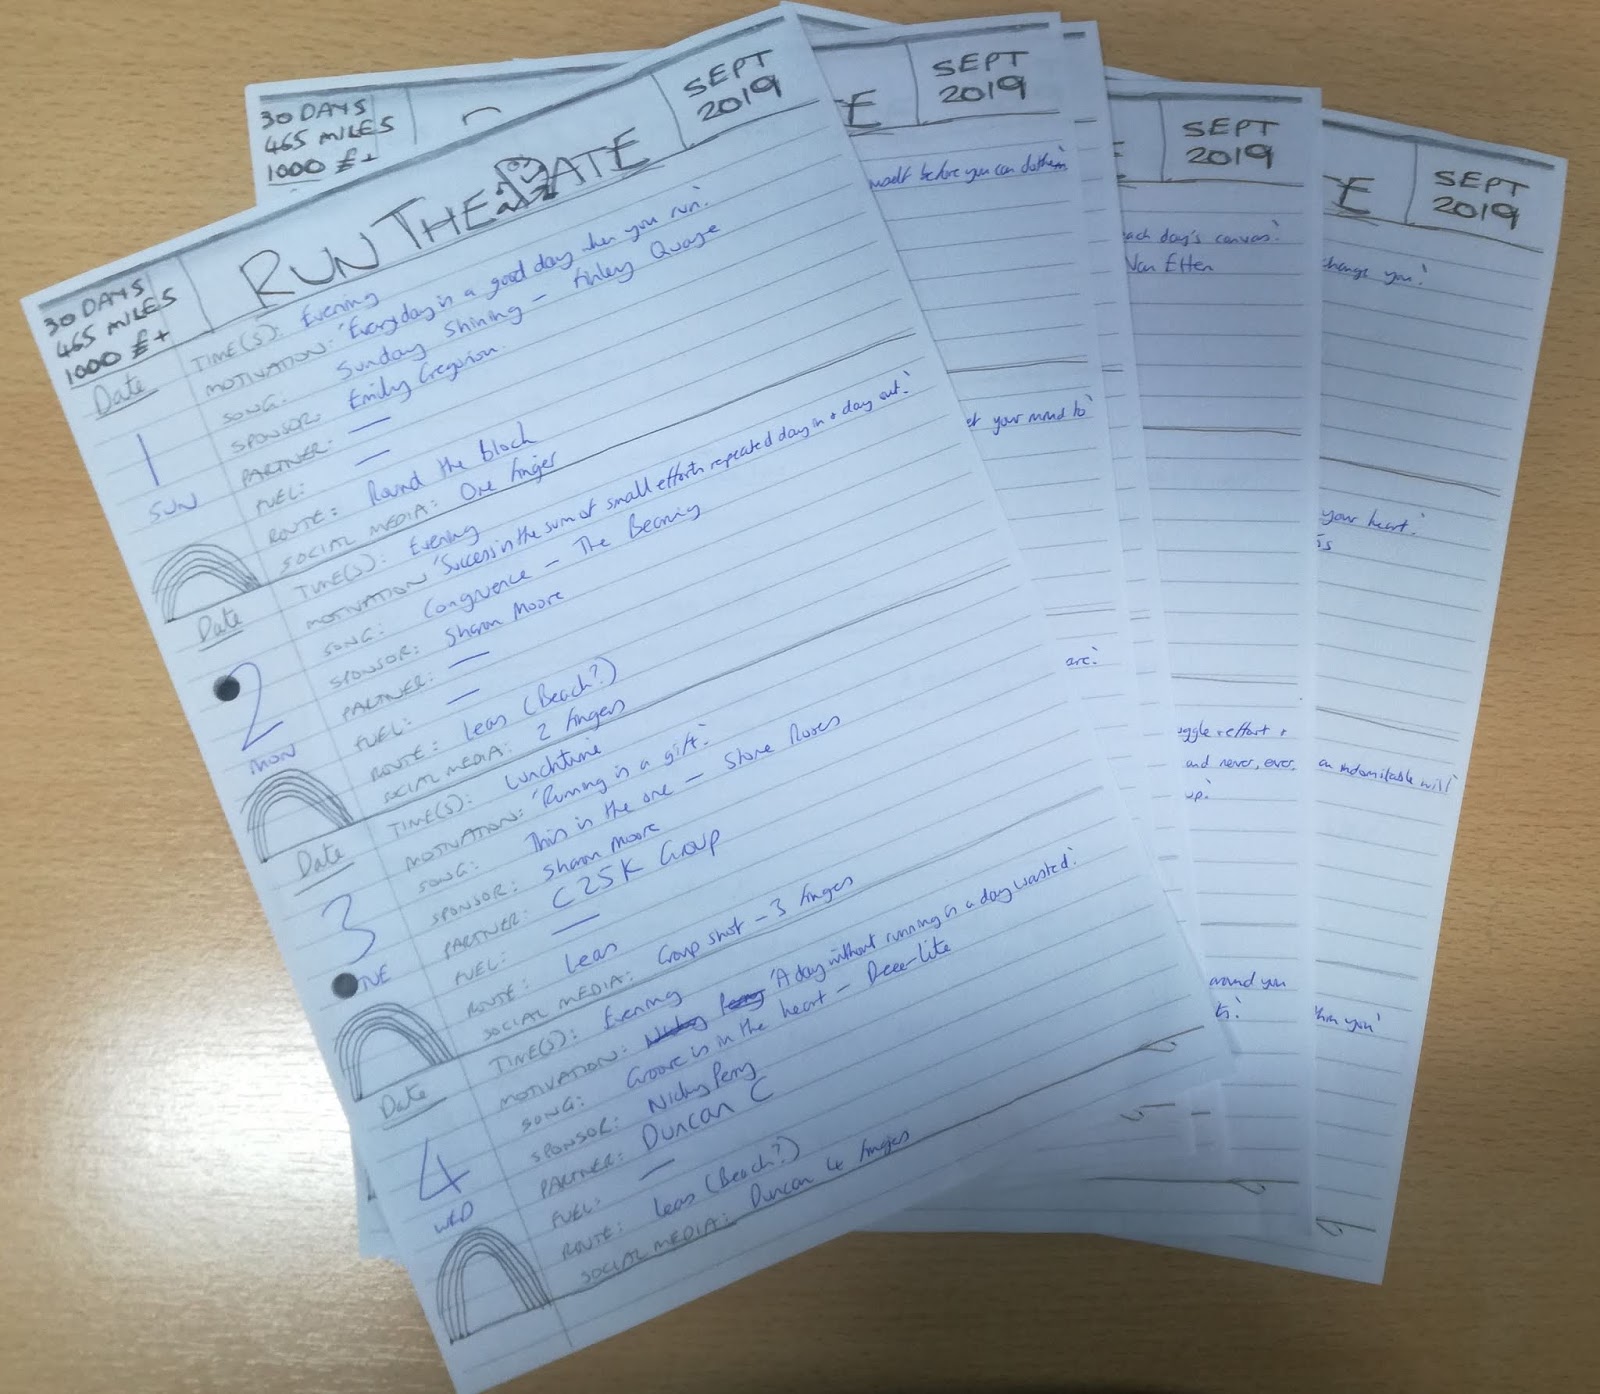 30 DAYS
465 MILES
1000 £+
RUN THE DATE
SEPT
2019
Date
1
SUN
TIME(S): Evening
MOTIVATION: 'Every day is a good day when you run.'
SONG: Sunday Shining – Finley Quaye
SPONSOR: Emily Gregorion.
PARTNER: —
FUEL: —
ROUTE: Round the block
SOCIAL MEDIA: One finger
Date
2
MON
TIME(S): Evening
MOTIVATION 'Success is the sum of small efforts repeated day in + day out.'
SONG: Congruence – The Beaning
SPONSOR: Sharon Moore
PARTNER: —
FUEL: —
ROUTE: Leas (Beach?)
SOCIAL MEDIA: 2 fingers
Date
3
TUE
TIME(S): Lunchtime
MOTIVATION: 'Running is a gift.'
SONG: This is the one – Stone Roses
SPONSOR: Sharon Moore
PARTNER: C25K Group
FUEL: —
ROUTE: Leas
SOCIAL MEDIA: Group shot – 3 fingers
Date
4
WED
TIME(S): Evening
MOTIVATION: Nicky Perry 'A day without running is a day wasted.'
SONG: Groove is in the heart – Deee-Lite
SPONSOR: Nicky Perry
PARTNER: Duncan C
FUEL: —
ROUTE: Leas (Beach?)
SOCIAL MEDIA: Duncan 4 fingers
30 DAYS
465 MILES
1000 £+
TE
SEPT
2019
before you can do them
your mind to'
are.'
E
SEPT
2019
each day's canvas.'
Van Etten
struggle + effort +
and never, ever,
up.'
around you
E
SEPT
2019
change you.'
your heart.'
an indomitable will'
within you'